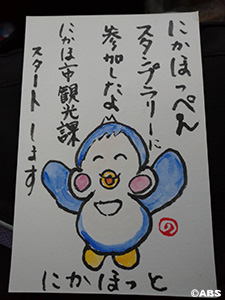 にかほっぺん
スタンプラリーに
参加したよ
にかほ市観光課
スタートします
にかほっと
の
©ABS